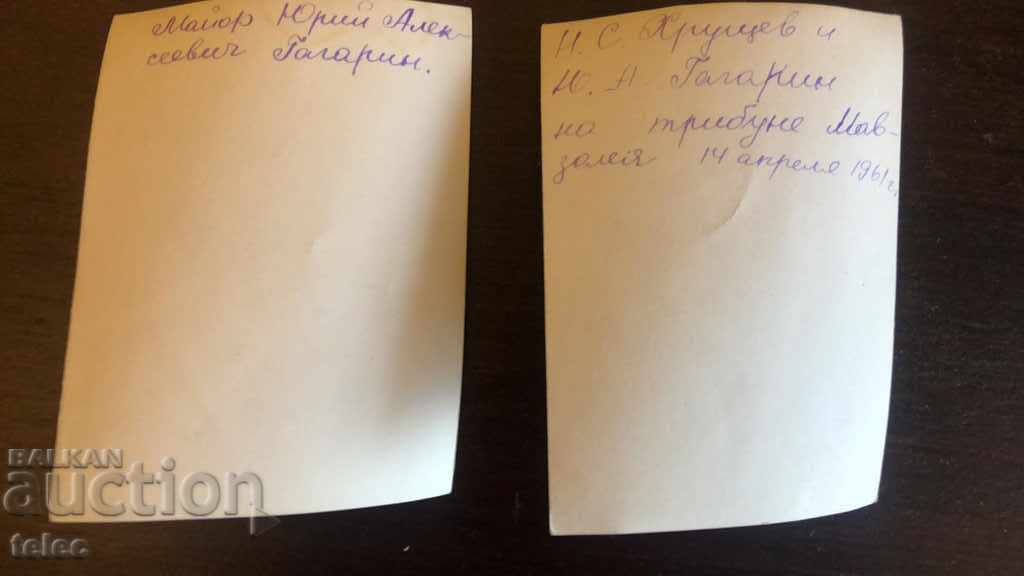 Майор Юрий Алек-
сеевич Гагарин.
Н. С. Хрущев и
Ю. А. Гагарин
на трибуне Мав-
золея 14 апреля 1961 г.
BALKAN
auction
telec